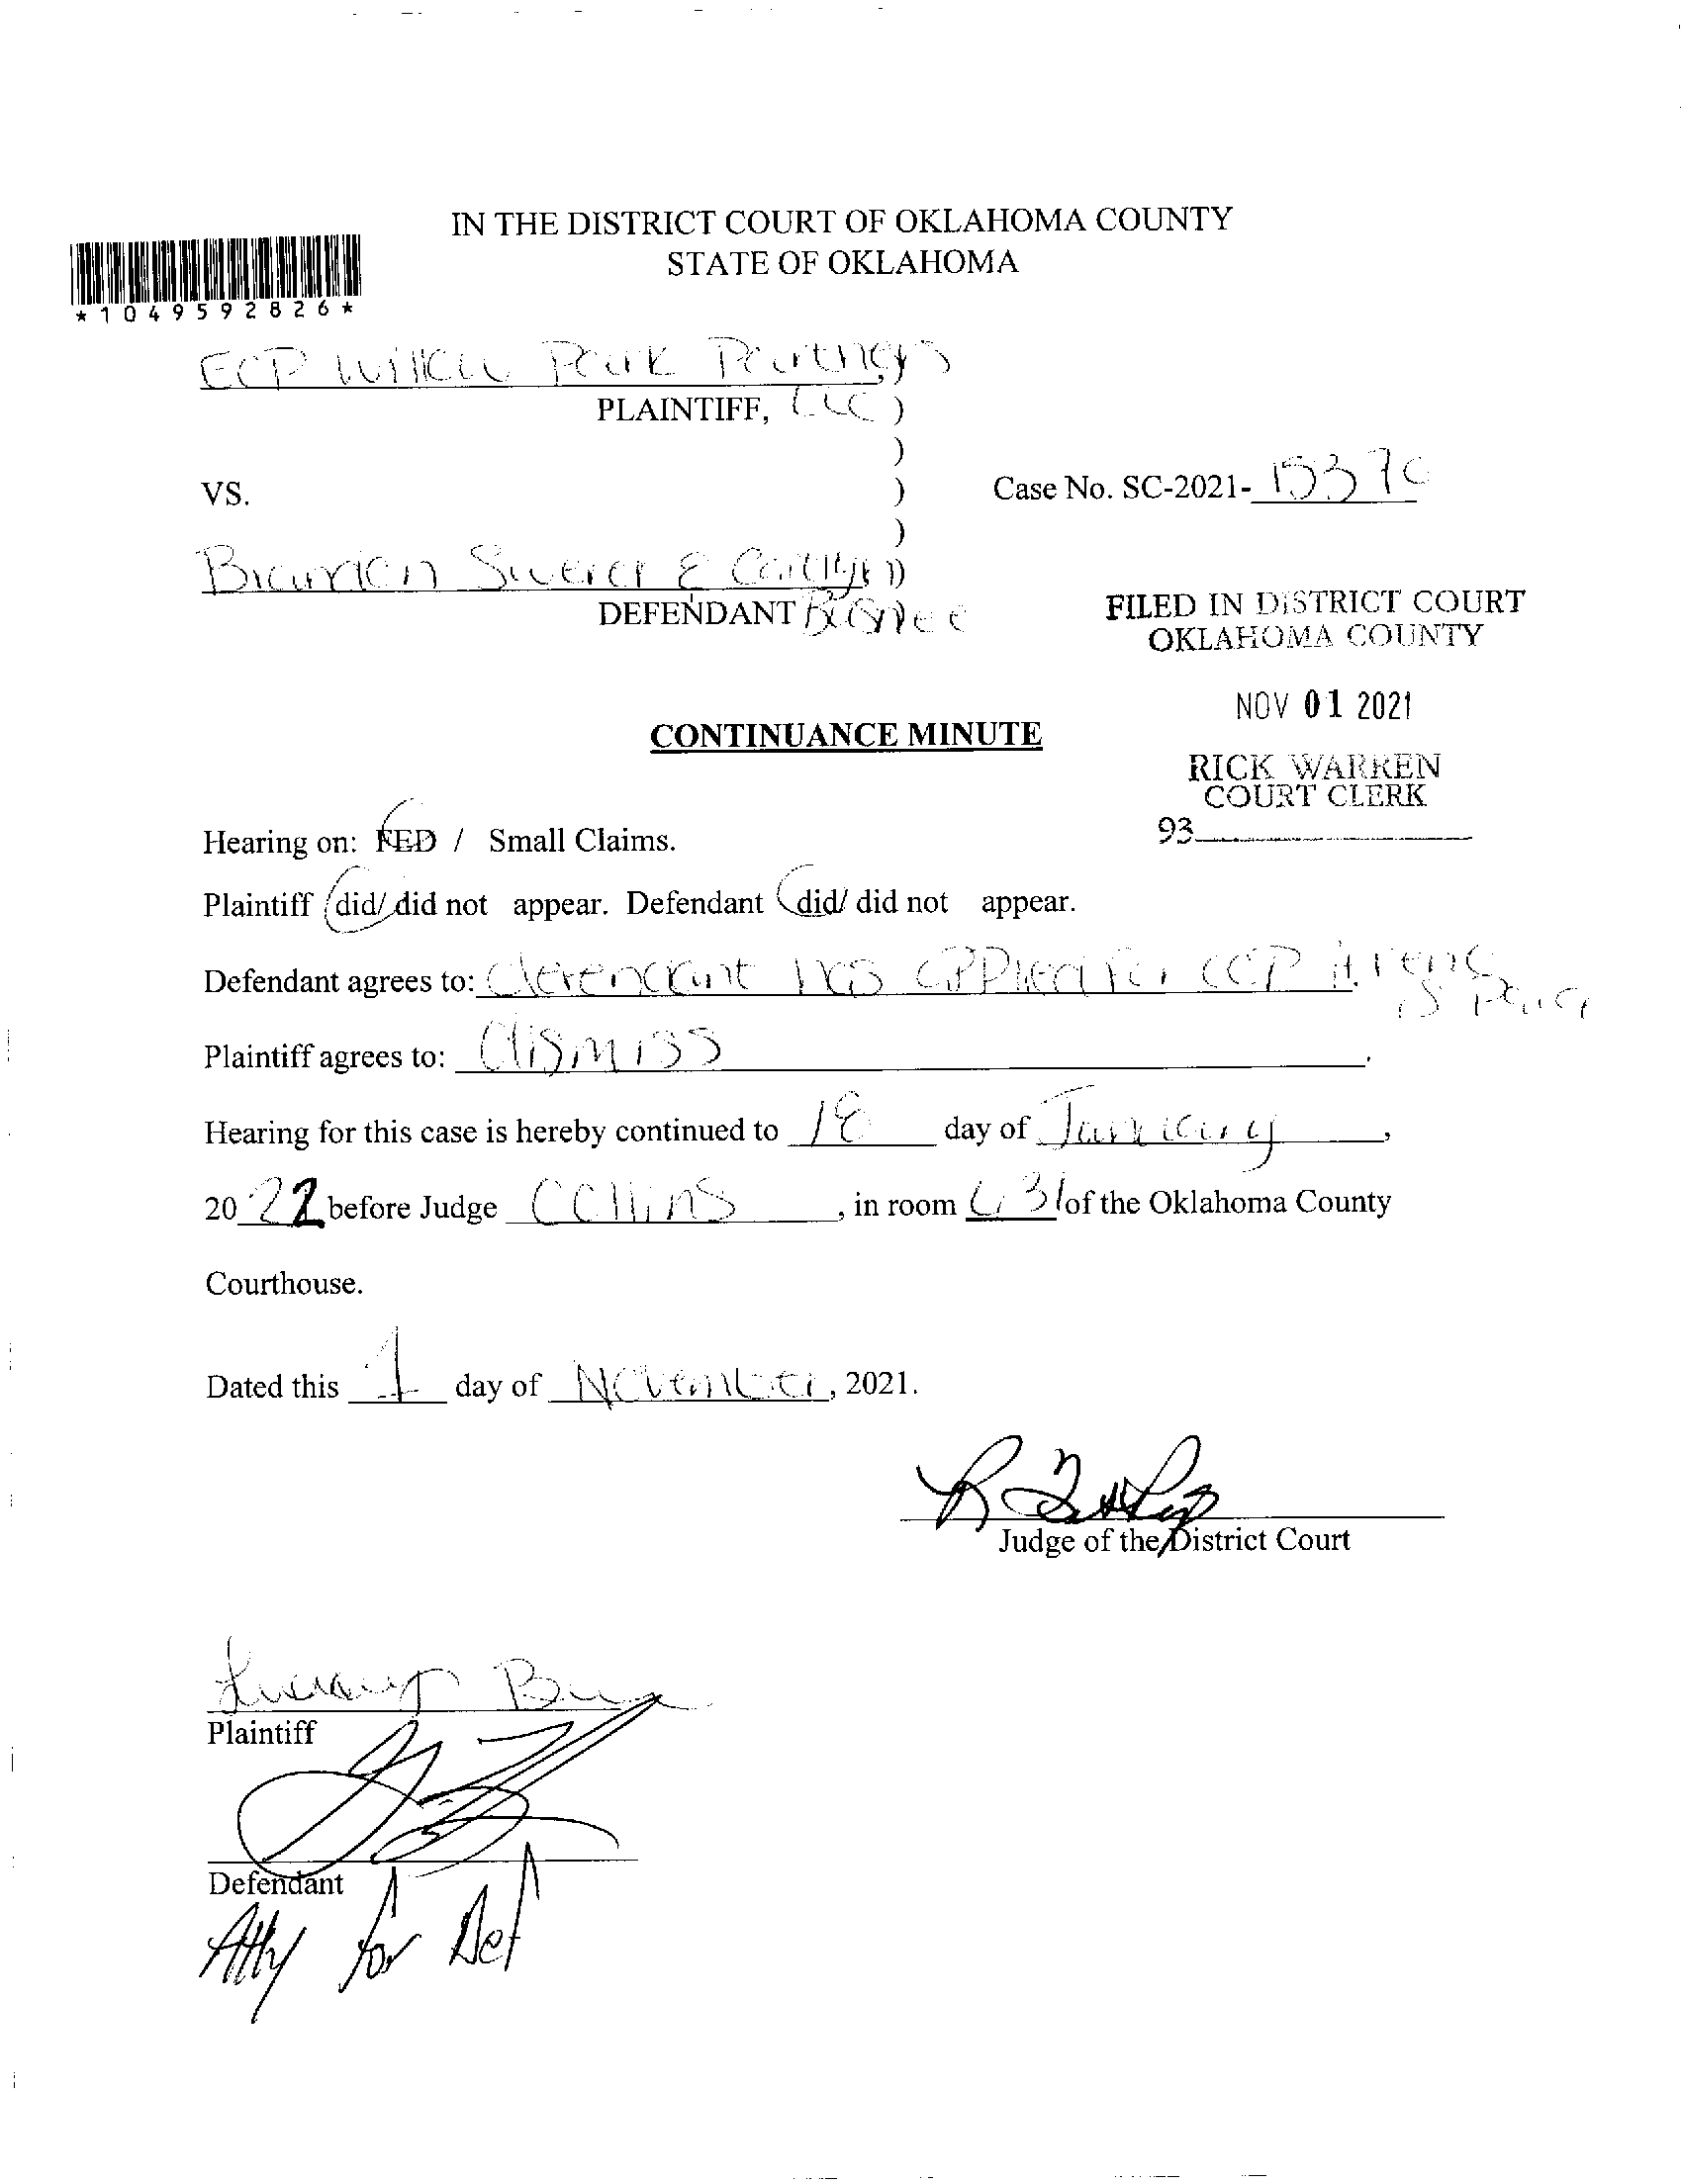 IN THE DISTRICT COURT OF OKLAHOMA COUNTY
STATE OF OKLAHOMA
*1049592826*
ECP Willow Park Partners
PLAINTIFF, LLC )
)
VS. ) Case No. SC-2021- 15370
)
& Caitlyn )
DEFENDANT
FILED IN DISTRICT COURT
OKLAHOMA COUNTY
NOV 01 2021
CONTINUANCE MINUTE
RICK WARREN
COURT CLERK
93
Hearing on: FED / Small Claims.
Plaintiff did/ did not appear. Defendant did/ did not appear.
Defendant agrees to: defendant has applied for CCP if rent
is paid
Plaintiff agrees to: dismiss
Hearing for this case is hereby continued to 18 day of January,
2022 before Judge Collins, in room 631 of the Oklahoma County
Courthouse.
Dated this 1 day of November, 2021.
Judge of the District Court
Plaintiff
Defendant
Atty for Def